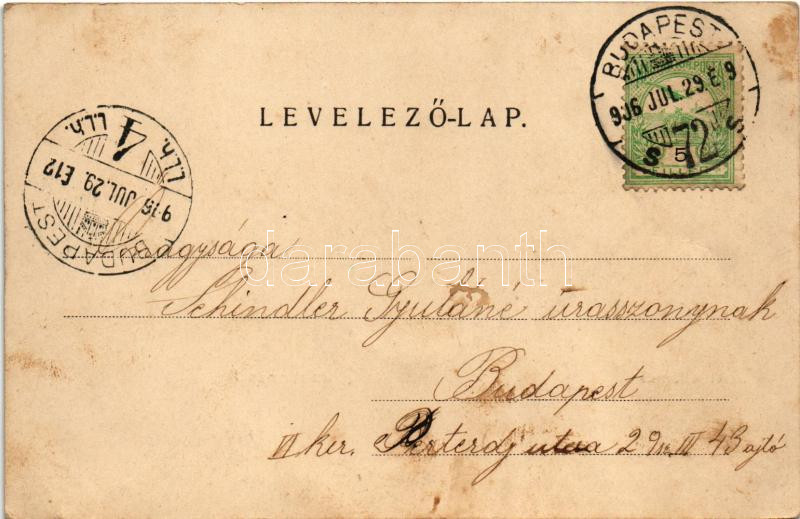 LEVELEZŐ-LAP.
BUDAPEST
906 JUL. 29. E 9
S 72 S
5
L.L.h. 4 L.L.h.
JUL. 29. E 12
BUDAPEST
darabanth
Schindler Gyuláné úrasszonynak
Budapest
ker. utca 29 sz. III 43 ajtó